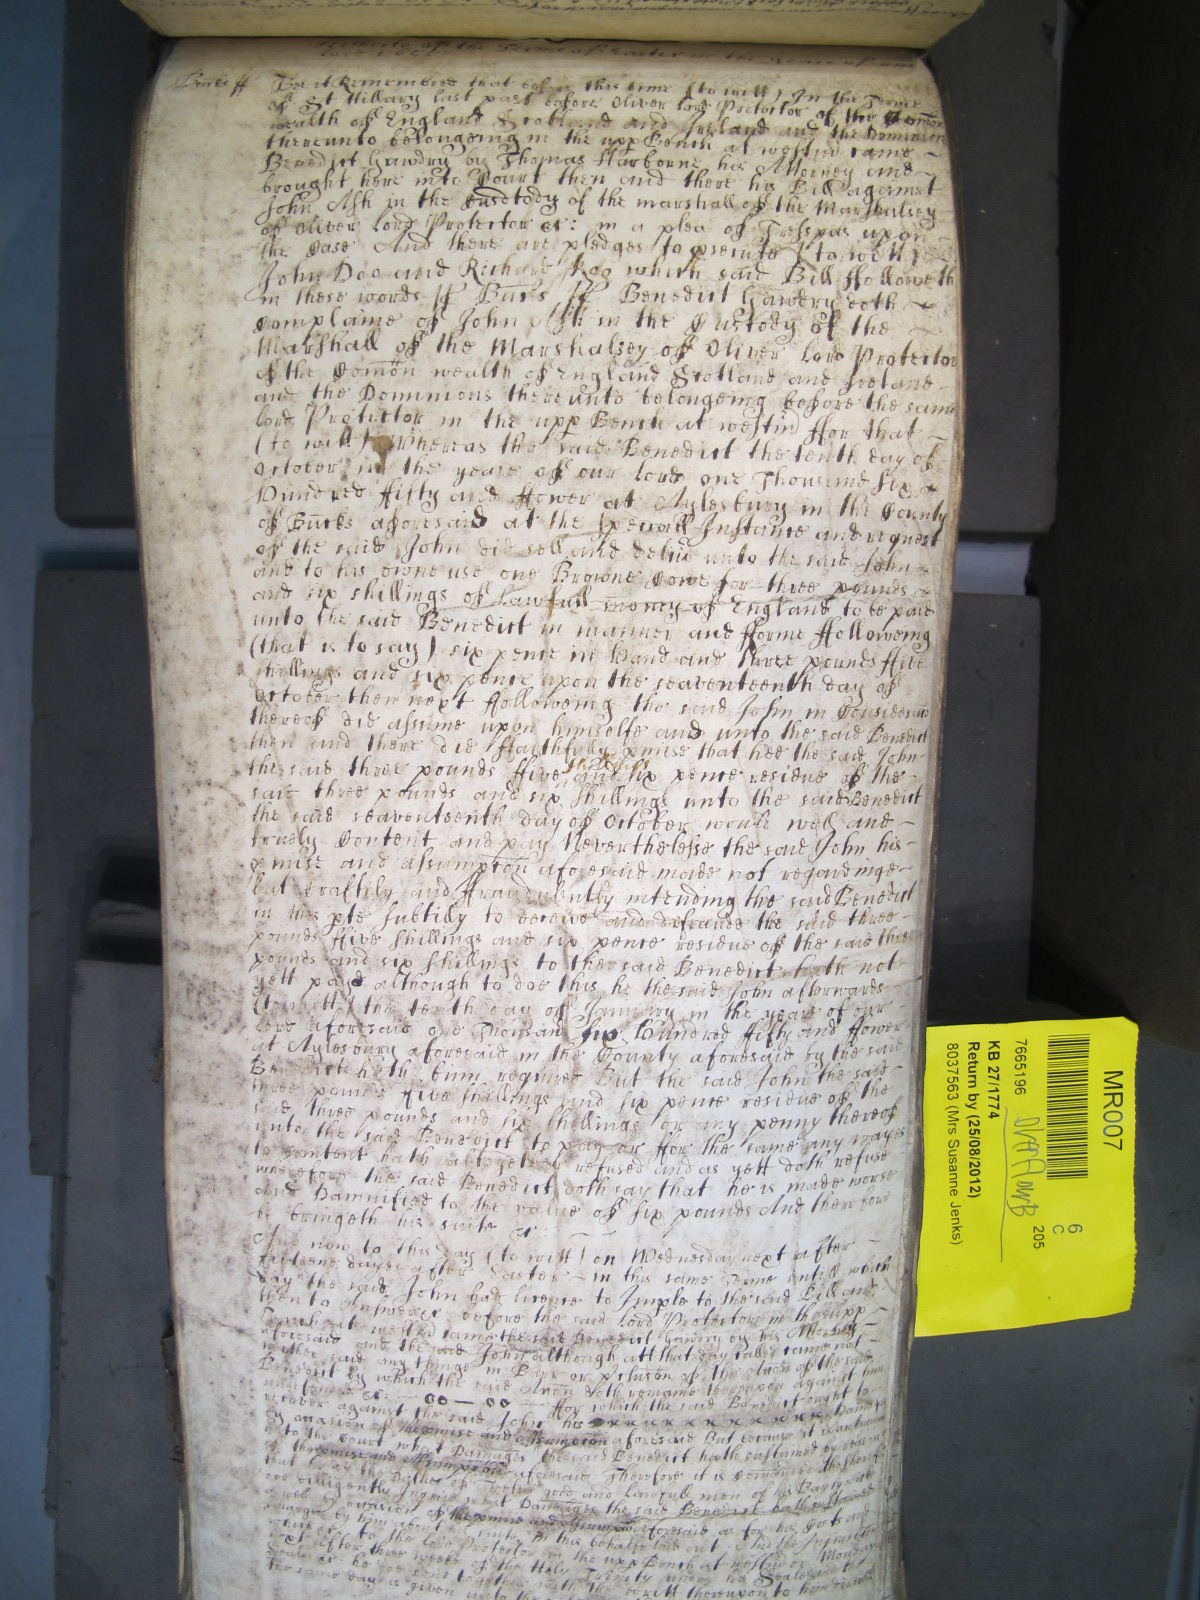 Bucks ff Bee it Remembred that before this time (to witt) In the Terme
of St Hillary last past before Oliver lord Protector of the Comon
wealth of England Scotland and Ireland and the Dominions
thereunto belongeing in the upp Bench at westm came
Benedict Gawdry by Thomas Harborne his Attorney and
brought here into Court then and there his Bill against
John Ash in the Custody of the marshall of the Marshalsey
of Oliver lord Protector &c: in a plea of Tresspas upon
the Case And there are pledges to psecute (to witt)
John Doo and Richard Roo which said Bill followeth
in these words ff Bucks ff Benedict Gawdry doth
Complaine of John Ash in the Custody of the
Marshall of the Marshalsey of Oliver lord Protector
of the Comon wealth of England Scotland and Ireland
and the Dominions thereunto belongeing before the same
lord Protector in the upp Bench at westm ffor that
(to witt) Whereas the said Benedict the tenth day of
October in the yeare of our lord one Thousand six
Hundred fifty and ffower at Aylesbury in the County
of Bucks aforesaid at the speciall Instance and request
of the said John did sell and deliu unto the said John
and to his owne use one Browne Cowe for three pounds
and six shillings of lawfull money of England to be paid
unto the said Benedict in manner and fforme ffolloweing
(that is to say) six pence in Hand and three pounds ffive
shillings and six pence upon the seaventeenth day of
October then next ffolloweing the said John in Consideracon
thereof did assume upon himselfe and unto the said Benedict
then and there did ffaithfully pmise that hee the said John
the said three pounds ffive shillings and six pence residue of the
said three pounds and six shillings unto the said Benedict
the said seaventeenth day of October would well and
truely Content and pay Neverthelesse the said John his
pmise and assumpcon aforesaid made not regardinge
but Craftily and ffraudulently intending the said Benedict
in this pte subtilly to deceive and defraude the said three
pounds ffive shillings and six pence residue of the said three
pounds and six shillings to the said Benedict hath not
yett paid although to doe this he the said John afterwards
(to witt) the tenth day of January in the yeare of our
lord aforesaid one Thousand six Hundred fifty and ffower
at Aylesbury aforesaid in the County aforesaid by the said
Benedict hath binn required But the said John the said
three pounds ffive shillings and six pence residue of the
said three pounds and six shillings or any penny thereof
unto the said Benedict to pay or for the same any wayes
to Content hath altogether refused and as yett doth refuse
wherefore the said Benedict doth say that he is made worse
and Damnified to the value of six pounds And therefore
he bringeth his suite &c
And now to this day (to witt) on Wednesday next after
fifteene dayes after Easter in this same Terme untill which
day the said John had licence to Imple to the said Bill and
then to Answere &c before the said lord Protector in the upp
Bench att westm came the said Benedict Gawdry by his Attorney
aforesaid and the said John although att that day called came not
neither said any thinge in Barr or pclusion of the accon of the said
Benedict by which the said Accon doth remaine thereupon against him
undefended &c: ffor which the said Benedict ought to
recover against the said John his x x x x x x x x x Damages
by occasion of the pmise and assumpcon aforesaid But because it is unknowne
to the Court what Damages the said Benedict hath sustained by reason
of the pmise and assumpcon aforesaid Therefore it is Comanded the Sheriffe
that by the Oathes of Twelve good and lawfull men of his Baylywick
hee diligently Inquire what Damages the said Benedict hath sustained
as well by occasion of the pmise and assumpcon aforesaid as for his Costs and
Charges by him about his suite in this behalfe laid out And the Inquisicon
to the lord Protector in the upp Bench at westm on Monday
next after three weekes of the Holy Trinity under his Seale and the
Seales &c he doe send together with the writt thereupon to him directed
the same day is given unto the
MR007
7665196
6
C
205
KB 27/1774
Return by (25/08/2012)
8037563 (Mrs Susanne Jenks)